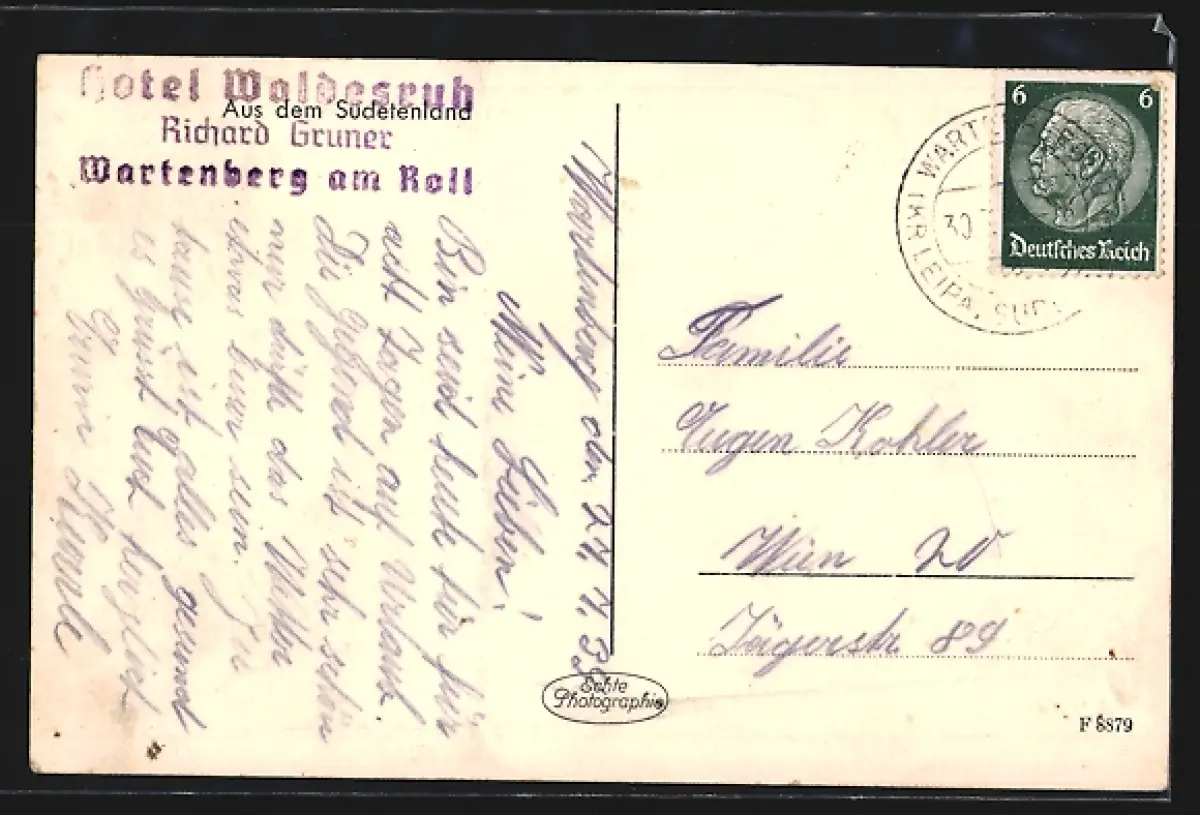 Hotel Waldesruh
Aus dem Sudetenland
Richard Gruner
Wartenberg am Roll
Wartenberg am 27. 7. 39
Meine Lieben!
Bin seit heute für für
acht Tagen auf Urlaub.
Die Gegend ist sehr schön
nur dürfte das Wetter
etwas besser sein. Zu
hause ist alles gesund
es grüsst Euch herzlich
Eure
6 6
Deutsches Reich
WARTEN
30
LEIPA, SUD
Familie
Eugen Kohler
Wien XX
Jägerstr. 89
Echte
Photographie
F 8879